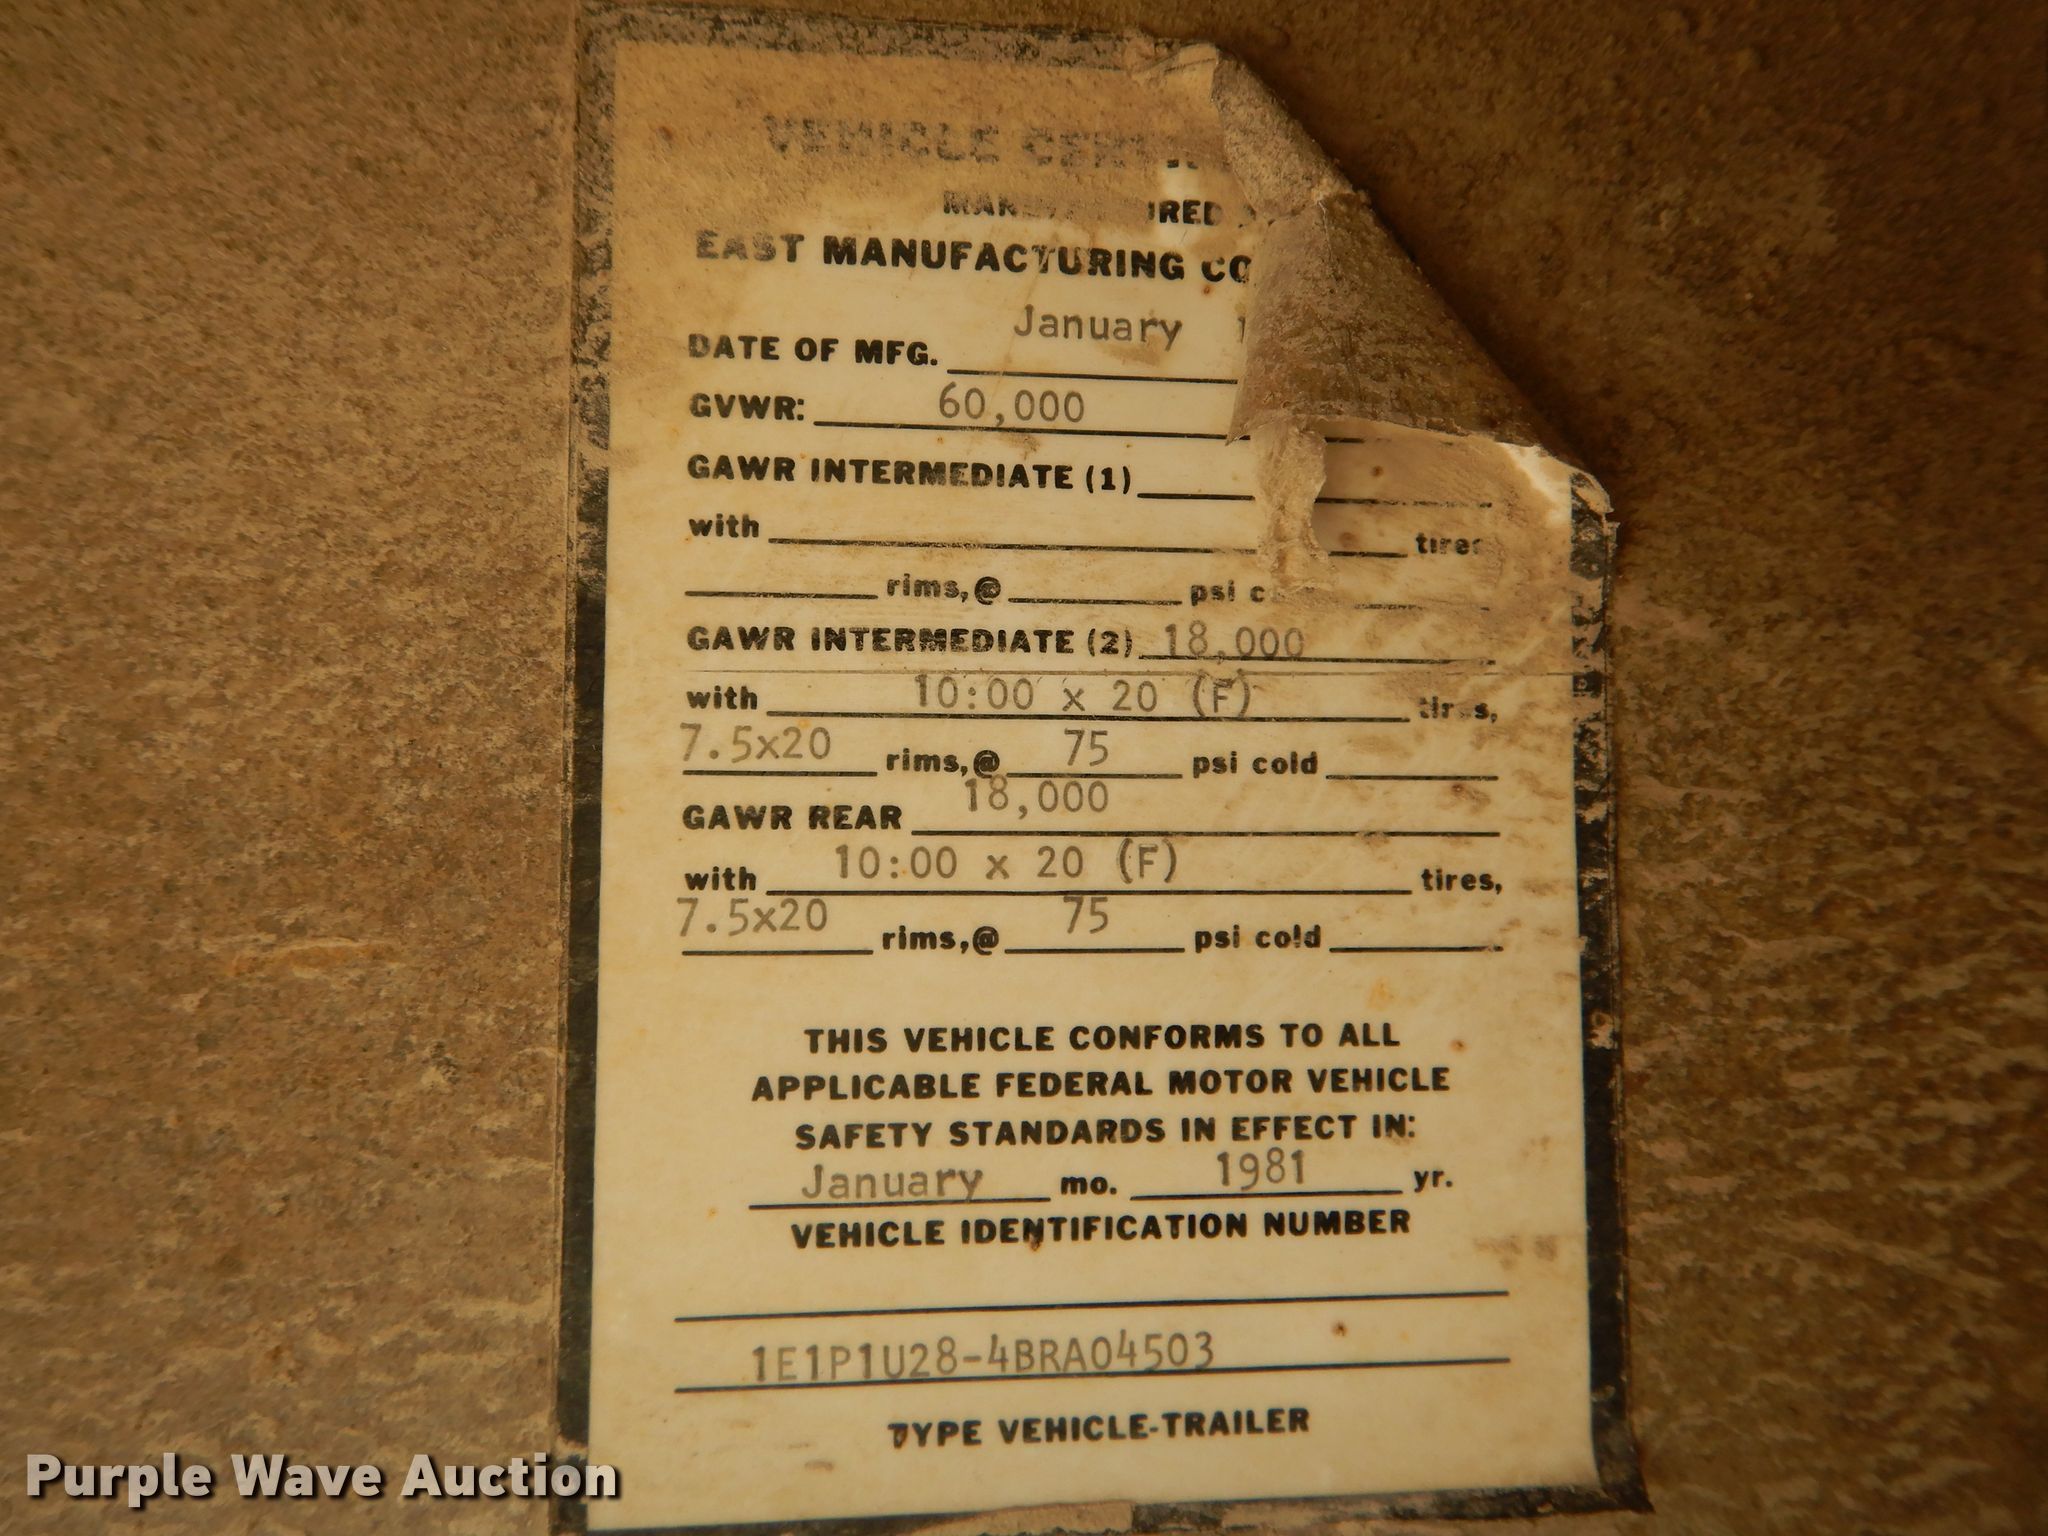 VEHICLE
EAST MANUFACTURING CO
DATE OF MFG. January 1
GVWR: 60,000
GAWR INTERMEDIATE (1)
with tires
rims,@ psi c
GAWR INTERMEDIATE (2) 18,000
with 10:00 x 20 (F) tires,
7.5x20 rims,@ 75 psi cold
GAWR REAR 18,000
with 10:00 x 20 (F) tires,
7.5x20 rims,@ 75 psi cold
THIS VEHICLE CONFORMS TO ALL
APPLICABLE FEDERAL MOTOR VEHICLE
SAFETY STANDARDS IN EFFECT IN:
January mo. 1981 yr.
VEHICLE IDENTIFICATION NUMBER
1E1P1U28-4BRA04503
TYPE VEHICLE-TRAILER
Purple Wave Auction